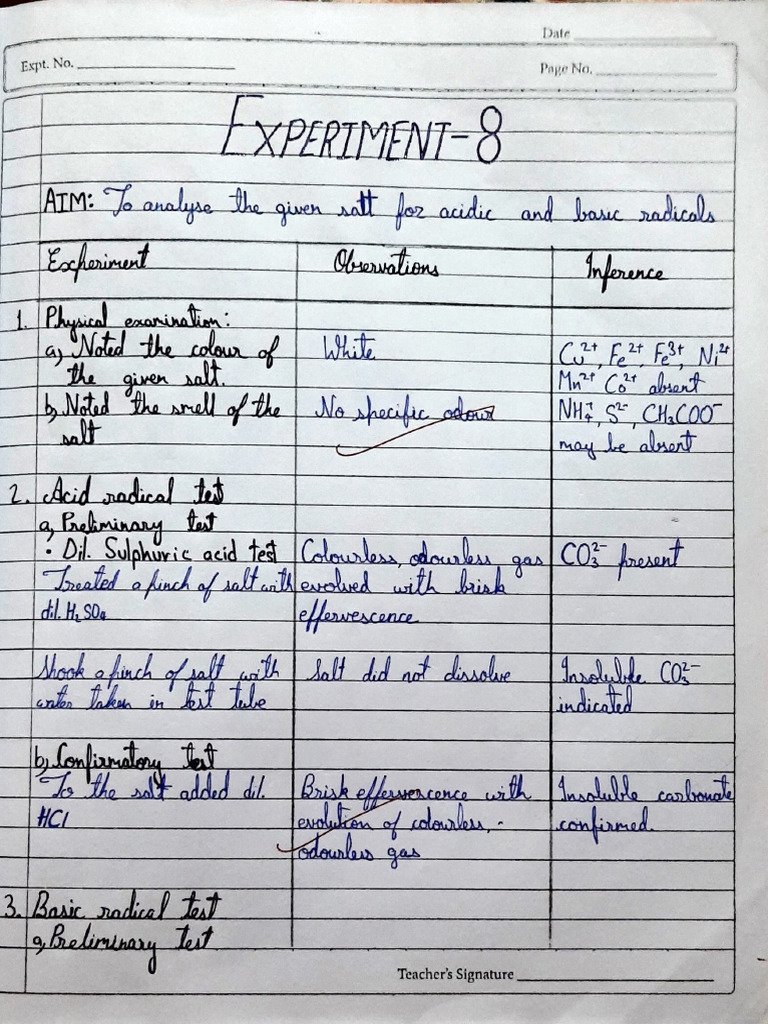 Date
Expt. No.
Page No.
EXPERIMENT-8
AIM: To analyse the given salt for acidic and basic radicals
Experiment Observations Inference
1. Physical examination:
a) Noted the colour of White Cu²⁺, Fe²⁺, Fe³⁺, Ni²⁺
the given salt. Mn²⁺ Co²⁺ absent
b) Noted the smell of the No specific odour NH₄⁺, S²⁻, CH₃COO⁻
salt may be absent
2. Acid radical test
a) Preliminary test
• Dil. Sulphuric acid test Colourless, odourless gas CO₃²⁻ present
Treated a pinch of salt with evolved with brisk
dil. H₂SO₄ effervescence
Shook a pinch of salt with Salt did not dissolve Insoluble CO₃²⁻
water taken in test tube indicated
b) Confirmatory test
To the salt added dil. Brisk effervescence with Insoluble carbonate
HCl evolution of colourless, - confirmed.
odourless gas
3. Basic radical test
a) Preliminary test
Teacher's Signature